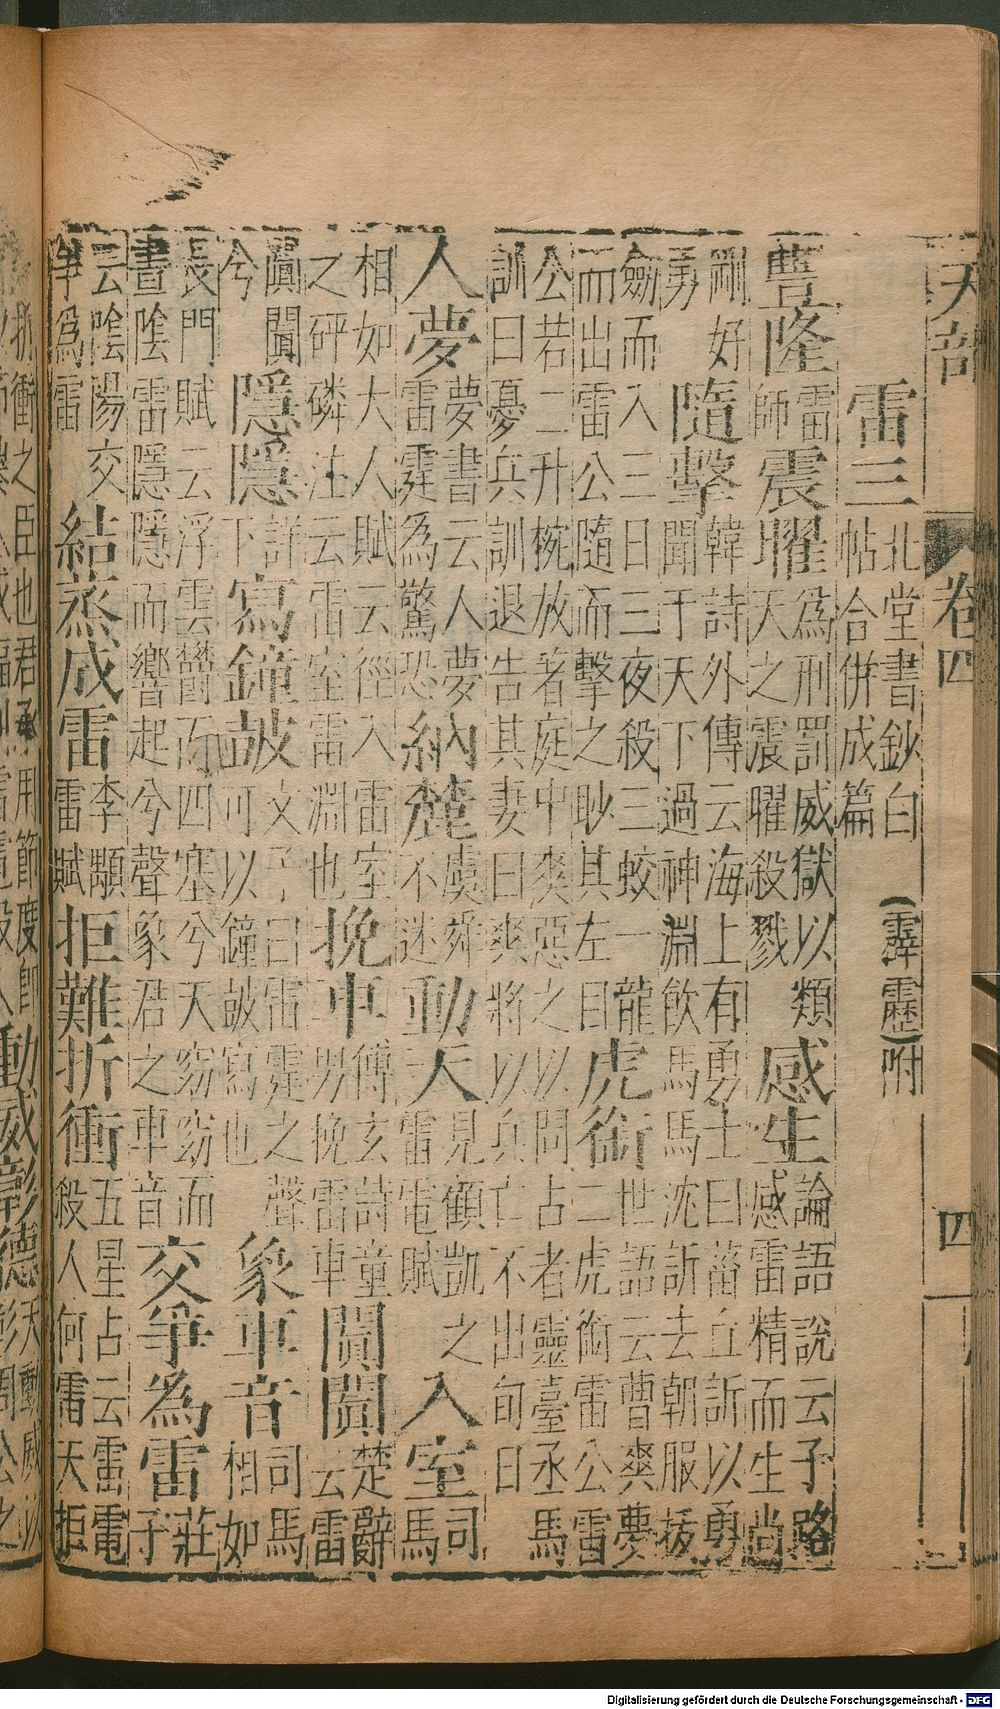 天部 卷四 四
雷三 北堂書鈔白帖合併成篇 (霹靂)附
豐隆 雷師 震曜 為刑罰威獄以類天之震曜殺戮 感生 論語說云子路感雷精而生尚
剛好勇 隨擊 韓詩外傳云海上有勇士曰菑丘訢以勇聞于天下過神淵飲馬馬沈訢去朝服拔
劍而入三日三夜殺三蛟一龍而出雷公隨而擊之眇其左目 虎銜 世語云曹爽夢二虎銜雷公雷
公若二升椀放著庭中爽惡之以問占者靈臺丞馬訓曰憂兵訓退告其妻曰爽將以兵亡不出旬日
入夢 夢書云人夢雷霆為驚恐 納麓 虞舜不迷 動天 見顧凱之雷電賦 入室 司馬
相如大人賦云徑入雷室之砰磷注云雷室雷淵也 挽車 傅玄詩童男挽雷車 闐闐 楚辭云雷
闐闐兮 隱隱 詳下 寫鐘皷 文子曰雷霆之聲可以鐘皷寫也 象車音 司馬相如
長門賦云浮雲鬱而四塞兮天窈窈而晝陰雷隱隱而響起兮聲象君之車音 交爭為雷 莊子
云陰陽交爭為雷 結蒸成雷 李顒雷賦 拒難折衝 五星占云雷電殺人何雷天拒
折衝之臣也君承用節度即 動威彰德 天動威以彰周公之
Digitalisierung gefördert durch die Deutsche Forschungsgemeinschaft - DFG